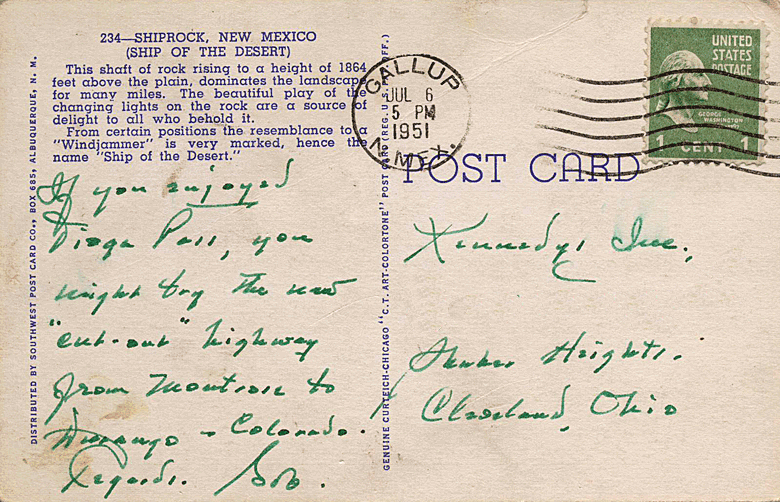 234—SHIPROCK, NEW MEXICO
(SHIP OF THE DESERT)
This shaft of rock rising to a height of 1864
feet above the plain, dominates the landscape
for many miles. The beautiful play of the
changing lights on the rock are a source of
delight to all who behold it.
From certain positions the resemblance to a
"Windjammer" is very marked, hence the
name "Ship of the Desert."
If you enjoyed
Tioga Pass, you
might try the new
"cut-out" highway
from Montrose to
Durango - Colorado.
Regards. Bob.
DISTRIBUTED BY SOUTHWEST POST CARD CO., BOX 685, ALBUQUERQUE, N. M.
GENUINE CURTEICH-CHICAGO "C.T. ART-COLORTONE" POST CARD (REG. U.S. PAT. OFF.)
GALLUP
JUL 6
5 PM
1951
N. MEX.
UNITED
STATES
POSTAGE
GEORGE
WASHINGTON
1 CENT 1
POST CARD
Kennedys Inc.,
Shaker Heights.
Cleveland, Ohio